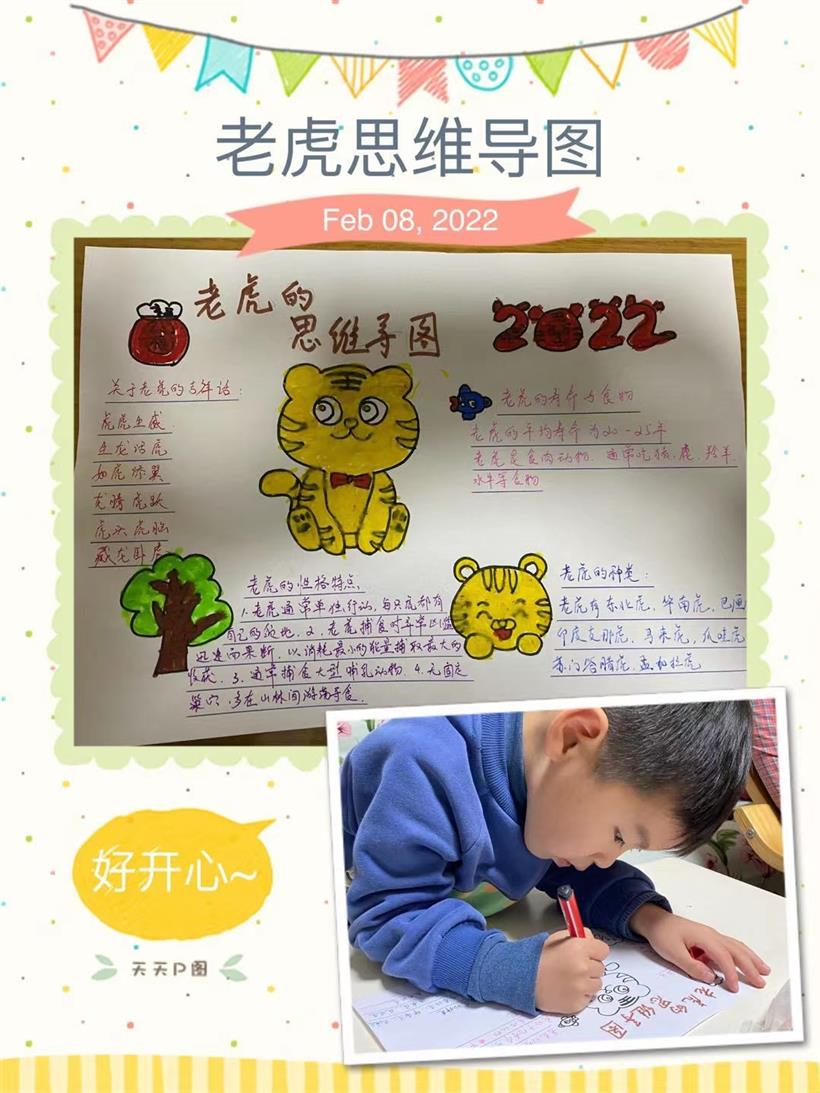 老虎思维导图
Feb 08, 2022
老虎的
思维导图
2022
关于老虎的吉祥话:
虎虎生威
生龙活虎
如虎添翼
龙腾虎跃
虎头虎脑
藏龙卧虎
老虎的寿命与食物
老虎的平均寿命为20-25年
老虎是食肉动物。通常吃猪、鹿、羚羊、
水牛等食物
老虎的性格特点
1.老虎通常单体行动,每只虎都有
自己的领地。2.老虎捕食时异常凶猛
迅速而果断,以消耗最小的能量捕取最大的
收获。3.通常捕食大型哺乳动物。4.无固定
巢穴,多在山林间游荡寻食。
老虎的种类:
老虎有东北虎,华南虎,巴厘
印度支那虎,马来虎,爪哇虎
苏门答腊虎,孟加拉虎
好开心~
天天P图
老虎的
思维导图